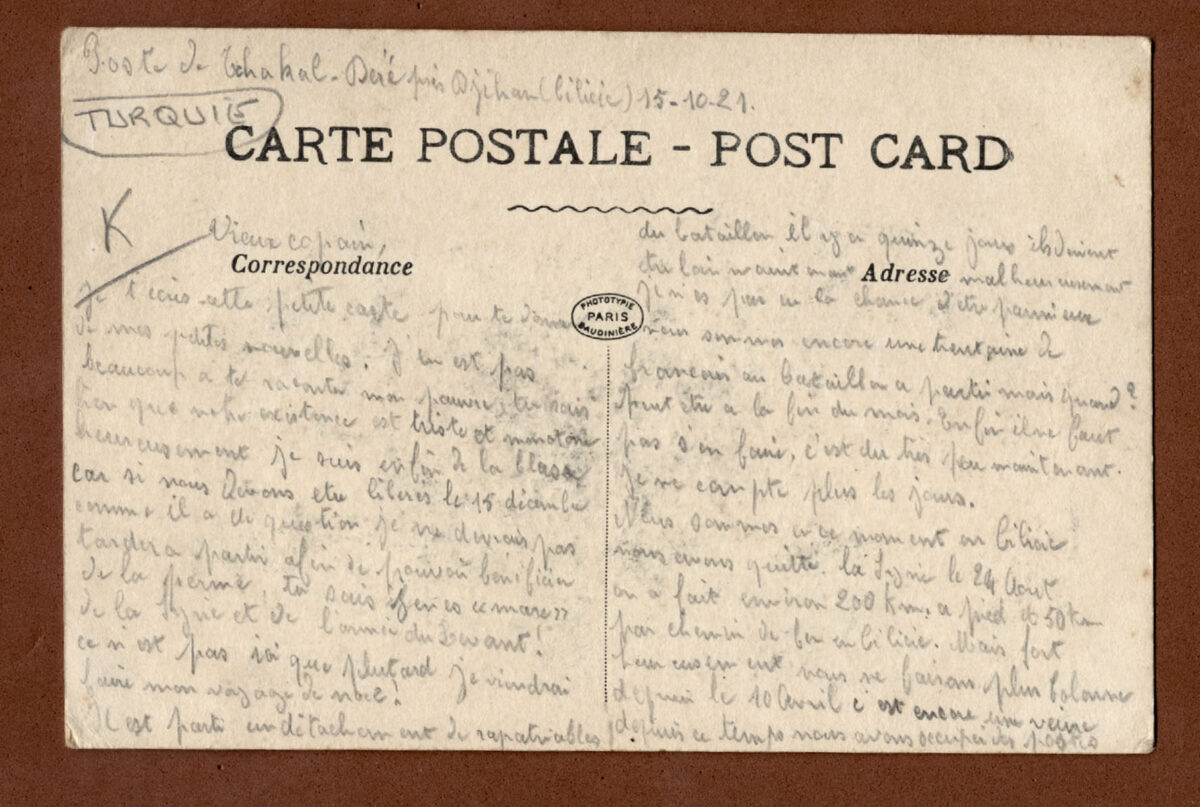 Poste de Tchakal-Deré près Djihan (Cilicie) 15-10-21.
TURQUIE
CARTE POSTALE - POST CARD
K
Vieux copain,
Correspondance
Je t'écris cette petite carte pour te donner
de mes petites nouvelles. J'en est pas
beaucoup a te raconter mon pauvre, tu sais
bien que notre existence est triste et monotone
heureusement je suis enfin de la classe
car si nous devons etre libérés le 15 décembre
comme il a de question je ne devrais pas
tarder a partir afin de pouvoir bénificier
de la perme, tu sais j'en es "marre"
de la Syrie et de l'armée du Levant!
ce n'est pas ici que plutard je viendrai
faire mon voyage de noce!
Il est parti un détachement de rapatriables
PHOTOTYPIE
PARIS
BAUDINIÈRE
du bataillon, il y a quinze jours ils doivent
etre loin maintenant malheureusement
Adresse
Je n'es pas eu la chance d'etre parmi eux
nous sommes encore une trentaine de
francais au bataillon a partir mais quand?
Peut etre a la fin du mois. Enfin il ne faut
pas s'en faire, c'est du très peu maintenant.
Je ne compte plus les jours.
Nous sommes en ce moment en Cilicie
nous avons quitté la Syrie le 24 Aout
on a fait environ 200 km. a pied et 50 km
par chemin de fer en Cilicie. Mais fort
heureusement nous ne faisons plus colonne
depuis le 10 Avril c'est encore une veine
depuis ce temps nous avons occuper des postes